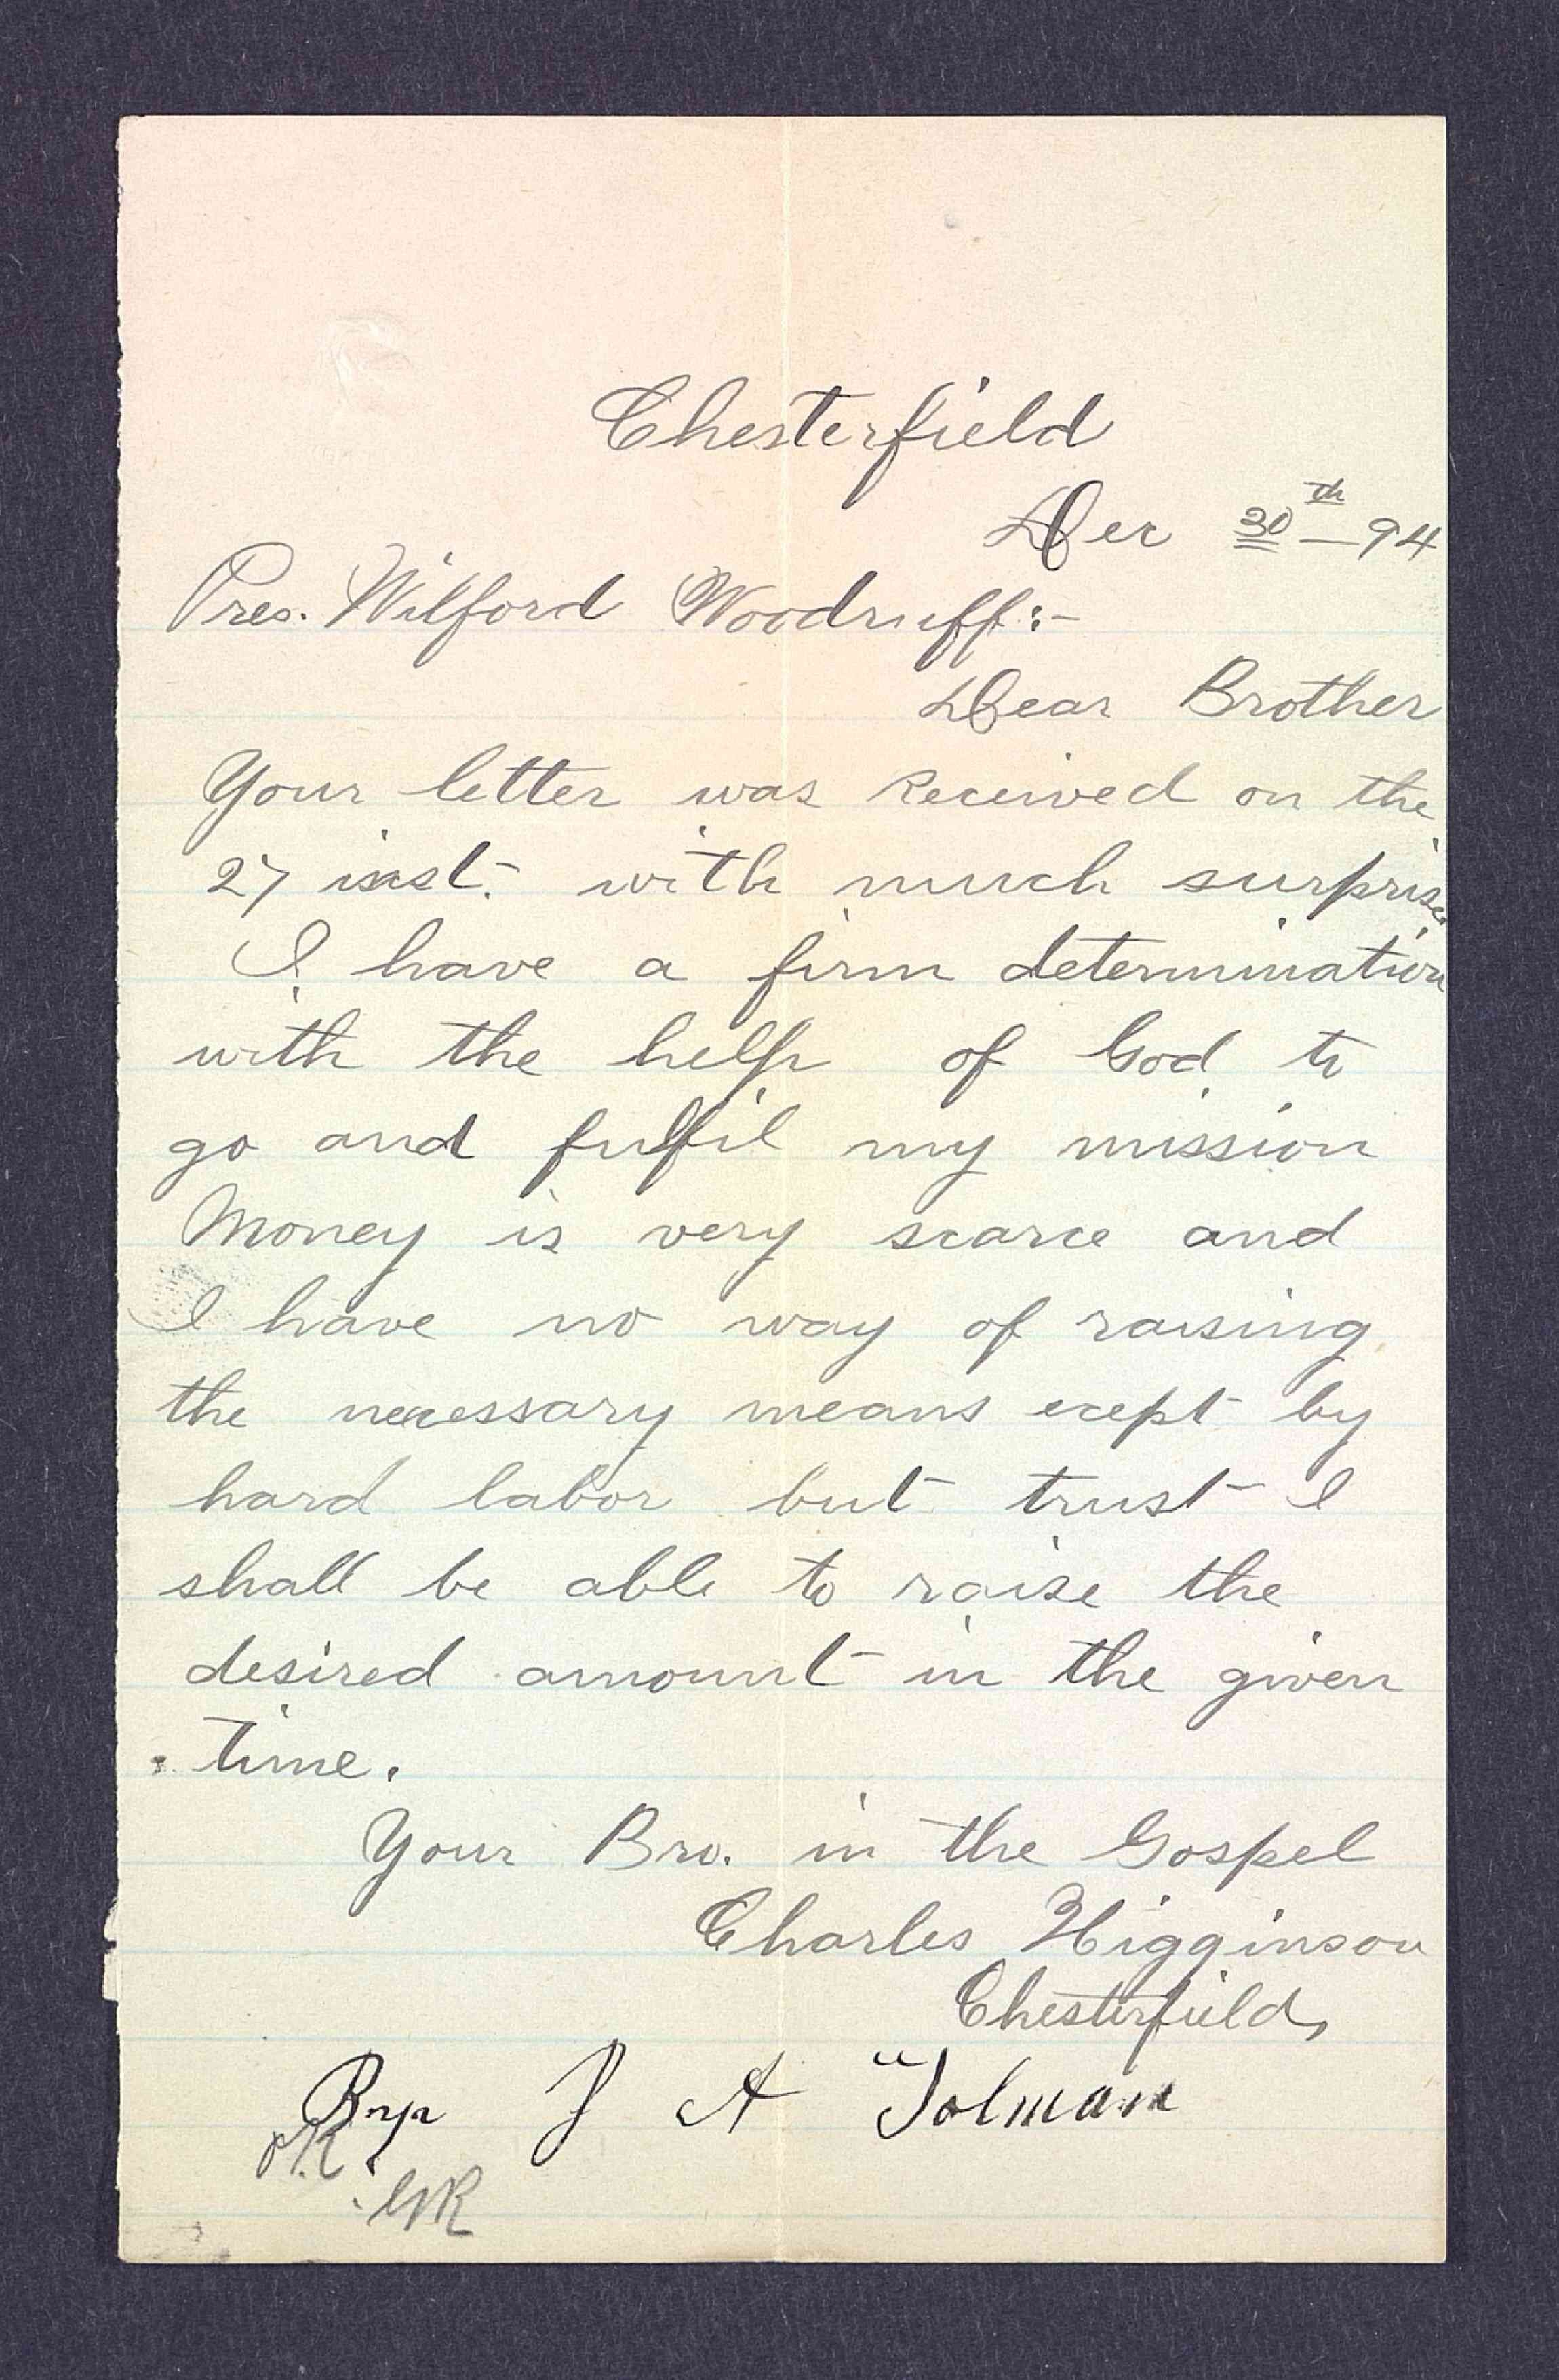 Chesterfield
Dec 30th — 94
Pres. Wilford Woodruff:-
Dear Brother
Your letter was Received on the
27 inst. with much surprise.
I have a firm determination
with the help of God to
go and fulfil my mission
Money is very scarce and
I have no way of raising
the necessary means ecept by
hard labor but trust I
shall be able to raise the
desired amount in the given
time.
Your Bro. in the Gospel
Charles Higginson
Chesterfield,
Bp J A Tolman
OK.
GR